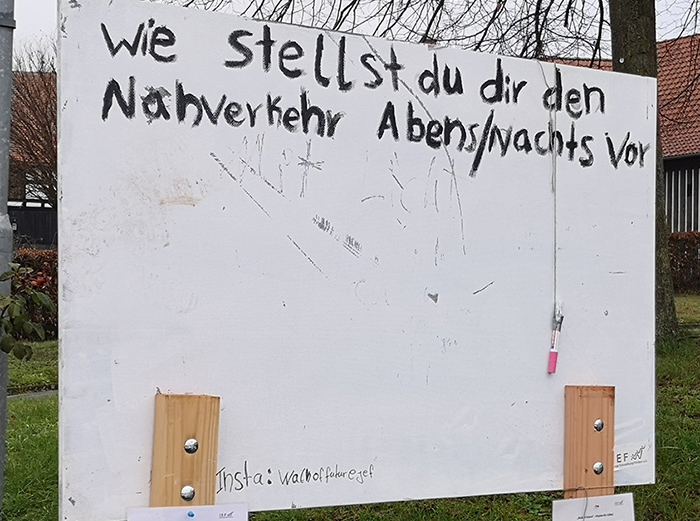 wie stellst du dir den
Nahverkehr Abens/Nachts Vor
Insta: walhoffuturejef